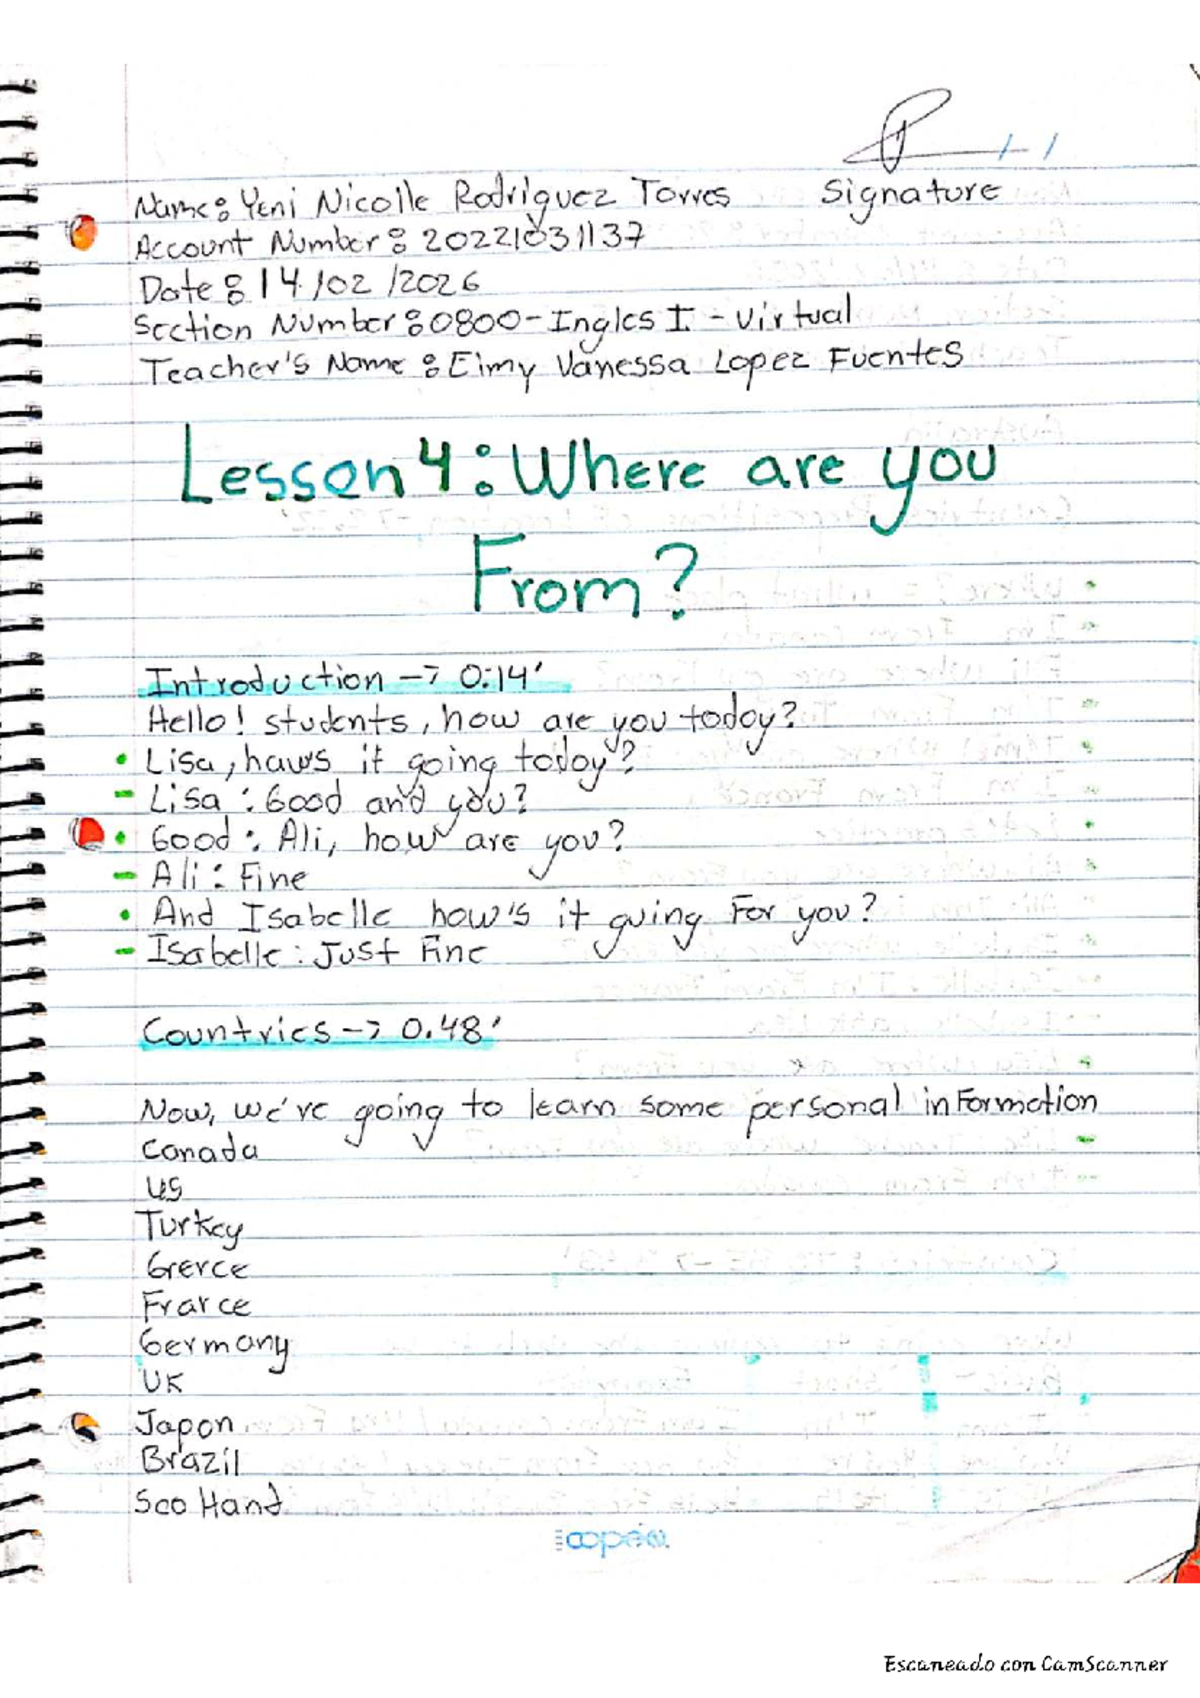 Signature
Name: Yeni Nicolle Rodriguez Torres
Account Number: 20221031137
Date: 14/02/2026
Section Number: 0800-Ingles I - Virtual
Teacher's Name: Elmy Vanessa Lopez Fuentes
Lesson 4: Where are you
From?
Introduction → 0:14'
Hello! students, how are you today?
• Lisa, haws it going today?
- Lisa: Good and you?
• Good: Ali, how are you?
- Ali: Fine
• And Isabelle how's it going For you?
- Isabelle: Just Fine
Countries → 0.48'
Now, we've going to learn some personal information
Canada
US
Turkey
Greece
France
Germany
UK
Japon
Brazil
Scotland
copán
Escaneado con CamScanner